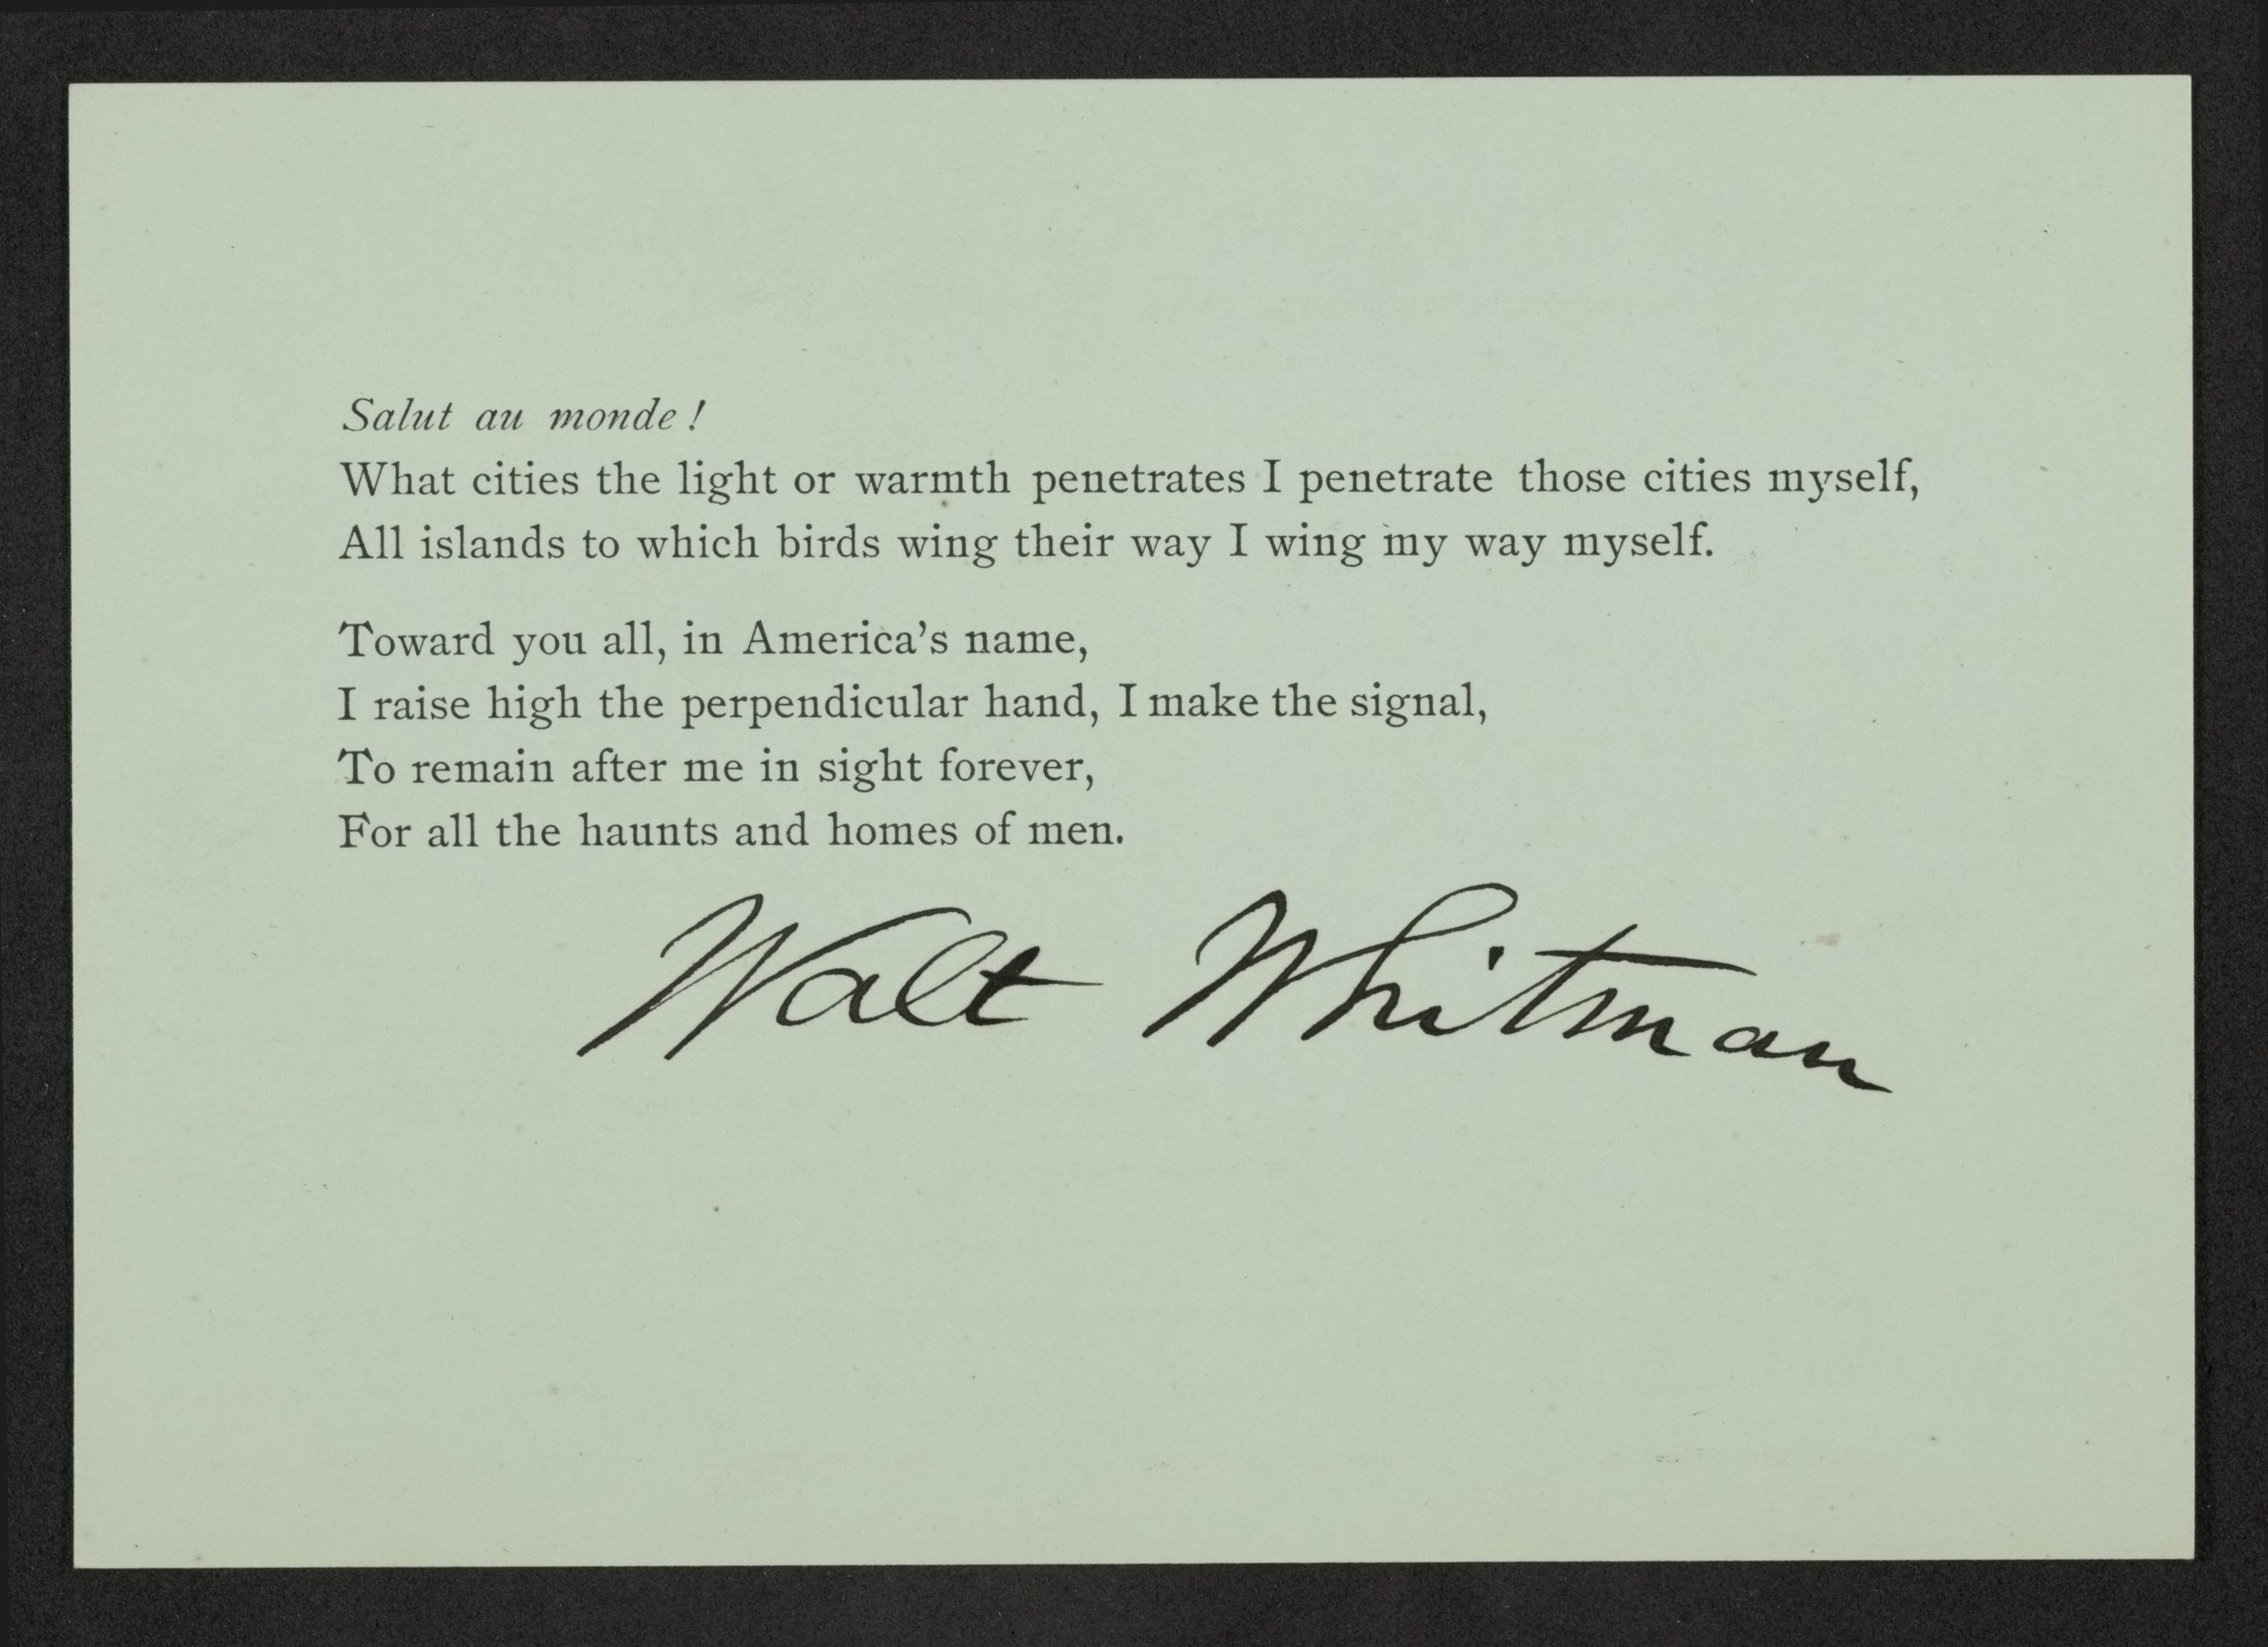 Salut au monde !
What cities the light or warmth penetrates I penetrate those cities myself,
All islands to which birds wing their way I wing my way myself.
Toward you all, in America’s name,
I raise high the perpendicular hand, I make the signal,
To remain after me in sight forever,
For all the haunts and homes of men.
Walt Whitman